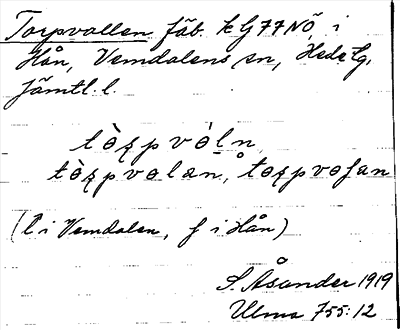 Torpvallen fäb. k G 77 NÖ, i
Hån, Vemdalens sn, Hede tg,
Jämtl. l.
tòrpvòln
tòrpvolæn, torpvoʃan
(l i Vemdalen, ʃ i Hån)
S. Åsander 1919
Ulma 755:12